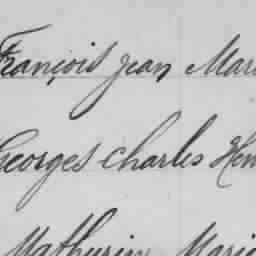 François Jean Mari
Georges Charles Hen
Mathurin Marie